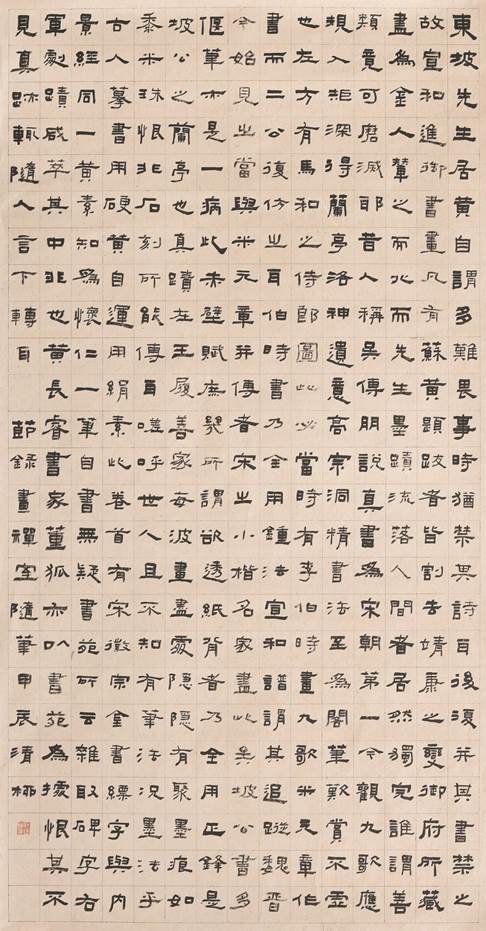 東坡先生居黃自謂多難畏事時猶禁其詩自後復并其書禁之
故宣和進御書畫凡有蘇黃題跋者皆割去靖康之變御府所藏
盡為金人輦之而北而先生墨蹟流落人間者居然獨完誰謂善
類竟可磨滅耶昔人稱吳傅朋說真書為宋朝第一今觀九歌應
規入矩深得蘭亭洛神遺意高宗洞精書法至為閣筆歎賞不虛
也左方有馬和之侍郎圖此必當時有李伯時畫九歌米元章作
書而二公復仿之耳伯時書乃全用鍾法宣和譜謂其追蹤魏晉
今始見之當與米元章并傳者宋之小楷名家盡此矣坡公書多
偃筆亦是一病此赤壁賦庶幾所謂欲透紙背者乃全用正鋒是
坡公之蘭亭也真蹟在王履善家每波畫盡處隱隱有聚墨痕如
黍米珠恨非石刻所能傳耳嗟呼世人且不知有筆法況墨法乎
古人摹書用硬黃自運用絹素此卷首有宋徽宗金書縹字與內
景經同一黃素知為懷仁一筆自書無疑書苑所云雜取碑字右
軍劇蹟咸萃其中非也黃長睿書家董狐亦以書苑為據恨其不
見真跡輒隨人言下轉耳 節錄畫禪室隨筆甲辰清